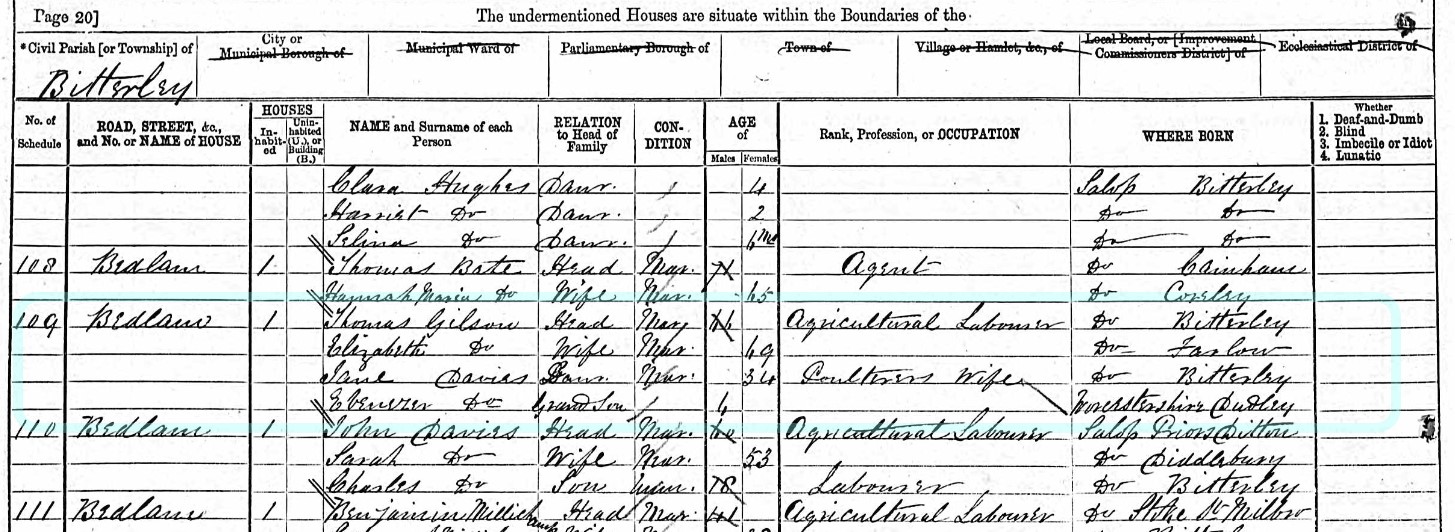 Page 20] The undermentioned Houses are situate within the Boundaries of the
*Civil Parish [or Township] of City or Municipal Borough of Municipal Ward of Parliamentary Borough of Town of Village or Hamlet, &c., of Local Board, or [Improvement Commissioners District] of Ecclesiastical District of
Bitterley
No. of Schedule ROAD, STREET, &c., and No. or NAME of HOUSE HOUSES In-habit-ed Unin-habited (U.), or Building (B.) NAME and Surname of each Person RELATION to Head of Family CON-DITION AGE of Males Females Rank, Profession, or OCCUPATION WHERE BORN Whether 1. Deaf-and-Dumb 2. Blind 3. Imbecile or Idiot 4. Lunatic
Clara Hughes Daur. 4 Salop Bitterley
Harriet Do Daur. 2 Do Do
Selina Do Daur. Do Do
108 Bedlam 1 Thomas Bate Head Mar. 71 Agent Do Cainham
Hannah Maria Do Wife Mar. 65 Do
109 Bedlam 1 Thomas Gilson Head Mar. 66 Agricultural Labourer Do Bitterley
Elizabeth Do Wife Mar. 69 Do Farlow
Jane Davies Daur. Mar. 34 Poulterers Wife Do Bitterley
Ebenezer Do Grand Son Worcestershire Dudley
110 Bedlam 1 John Davies Head Mar. 60 Agricultural Labourer Salop Priors Ditton
Sarah Do Wife Mar. 53 Do Diddlebury
Charles Do Son Unm. 18 Labourer Do Bitterley
111 Bedlam 1 Benjamin Millichamp Head Mar. 41 Agricultural Labourer Do Stoke St Milbro